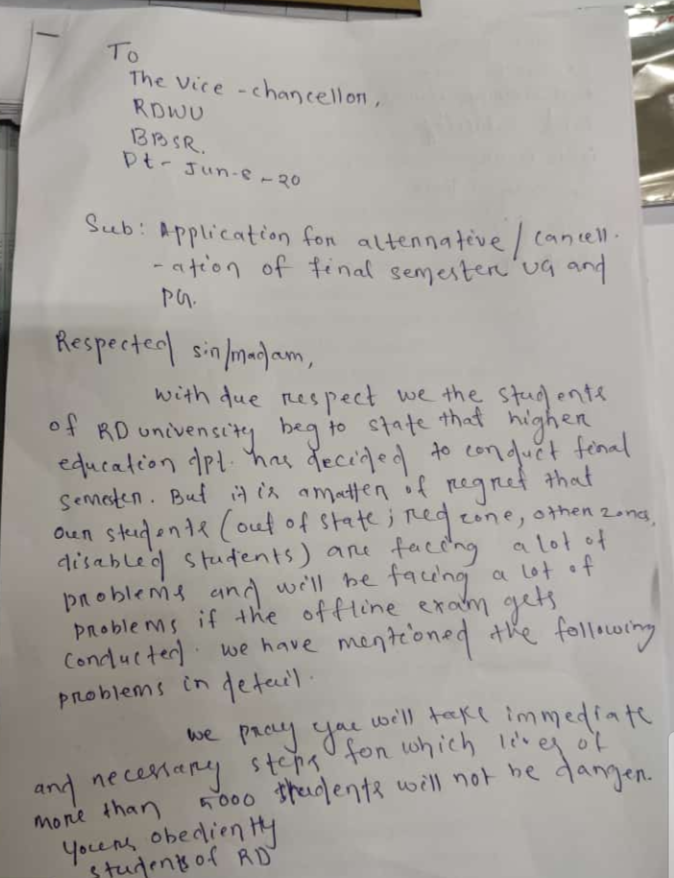 To
The Vice-chancellor,
RDWU
BBSR.
Dt- Jun-8-20
Sub: Application for alternative/cancell-
-ation of final semester UG and
PG.
Respected sir/madam,
with due respect we the students
of RD university beg to state that higher
education dpt. has decided to conduct final
semester. But it is a matter of regret that
our students (out of state; red zone, other zones,
disabled students) are facing a lot of
problems and will be facing a lot of
problems if the offline exam gets
conducted. we have mentioned the following
problems in detail.
we pray you will take immediate
and necessary steps for which lives of
more than 5000 students will not be danger.
yours obediently
students of RD